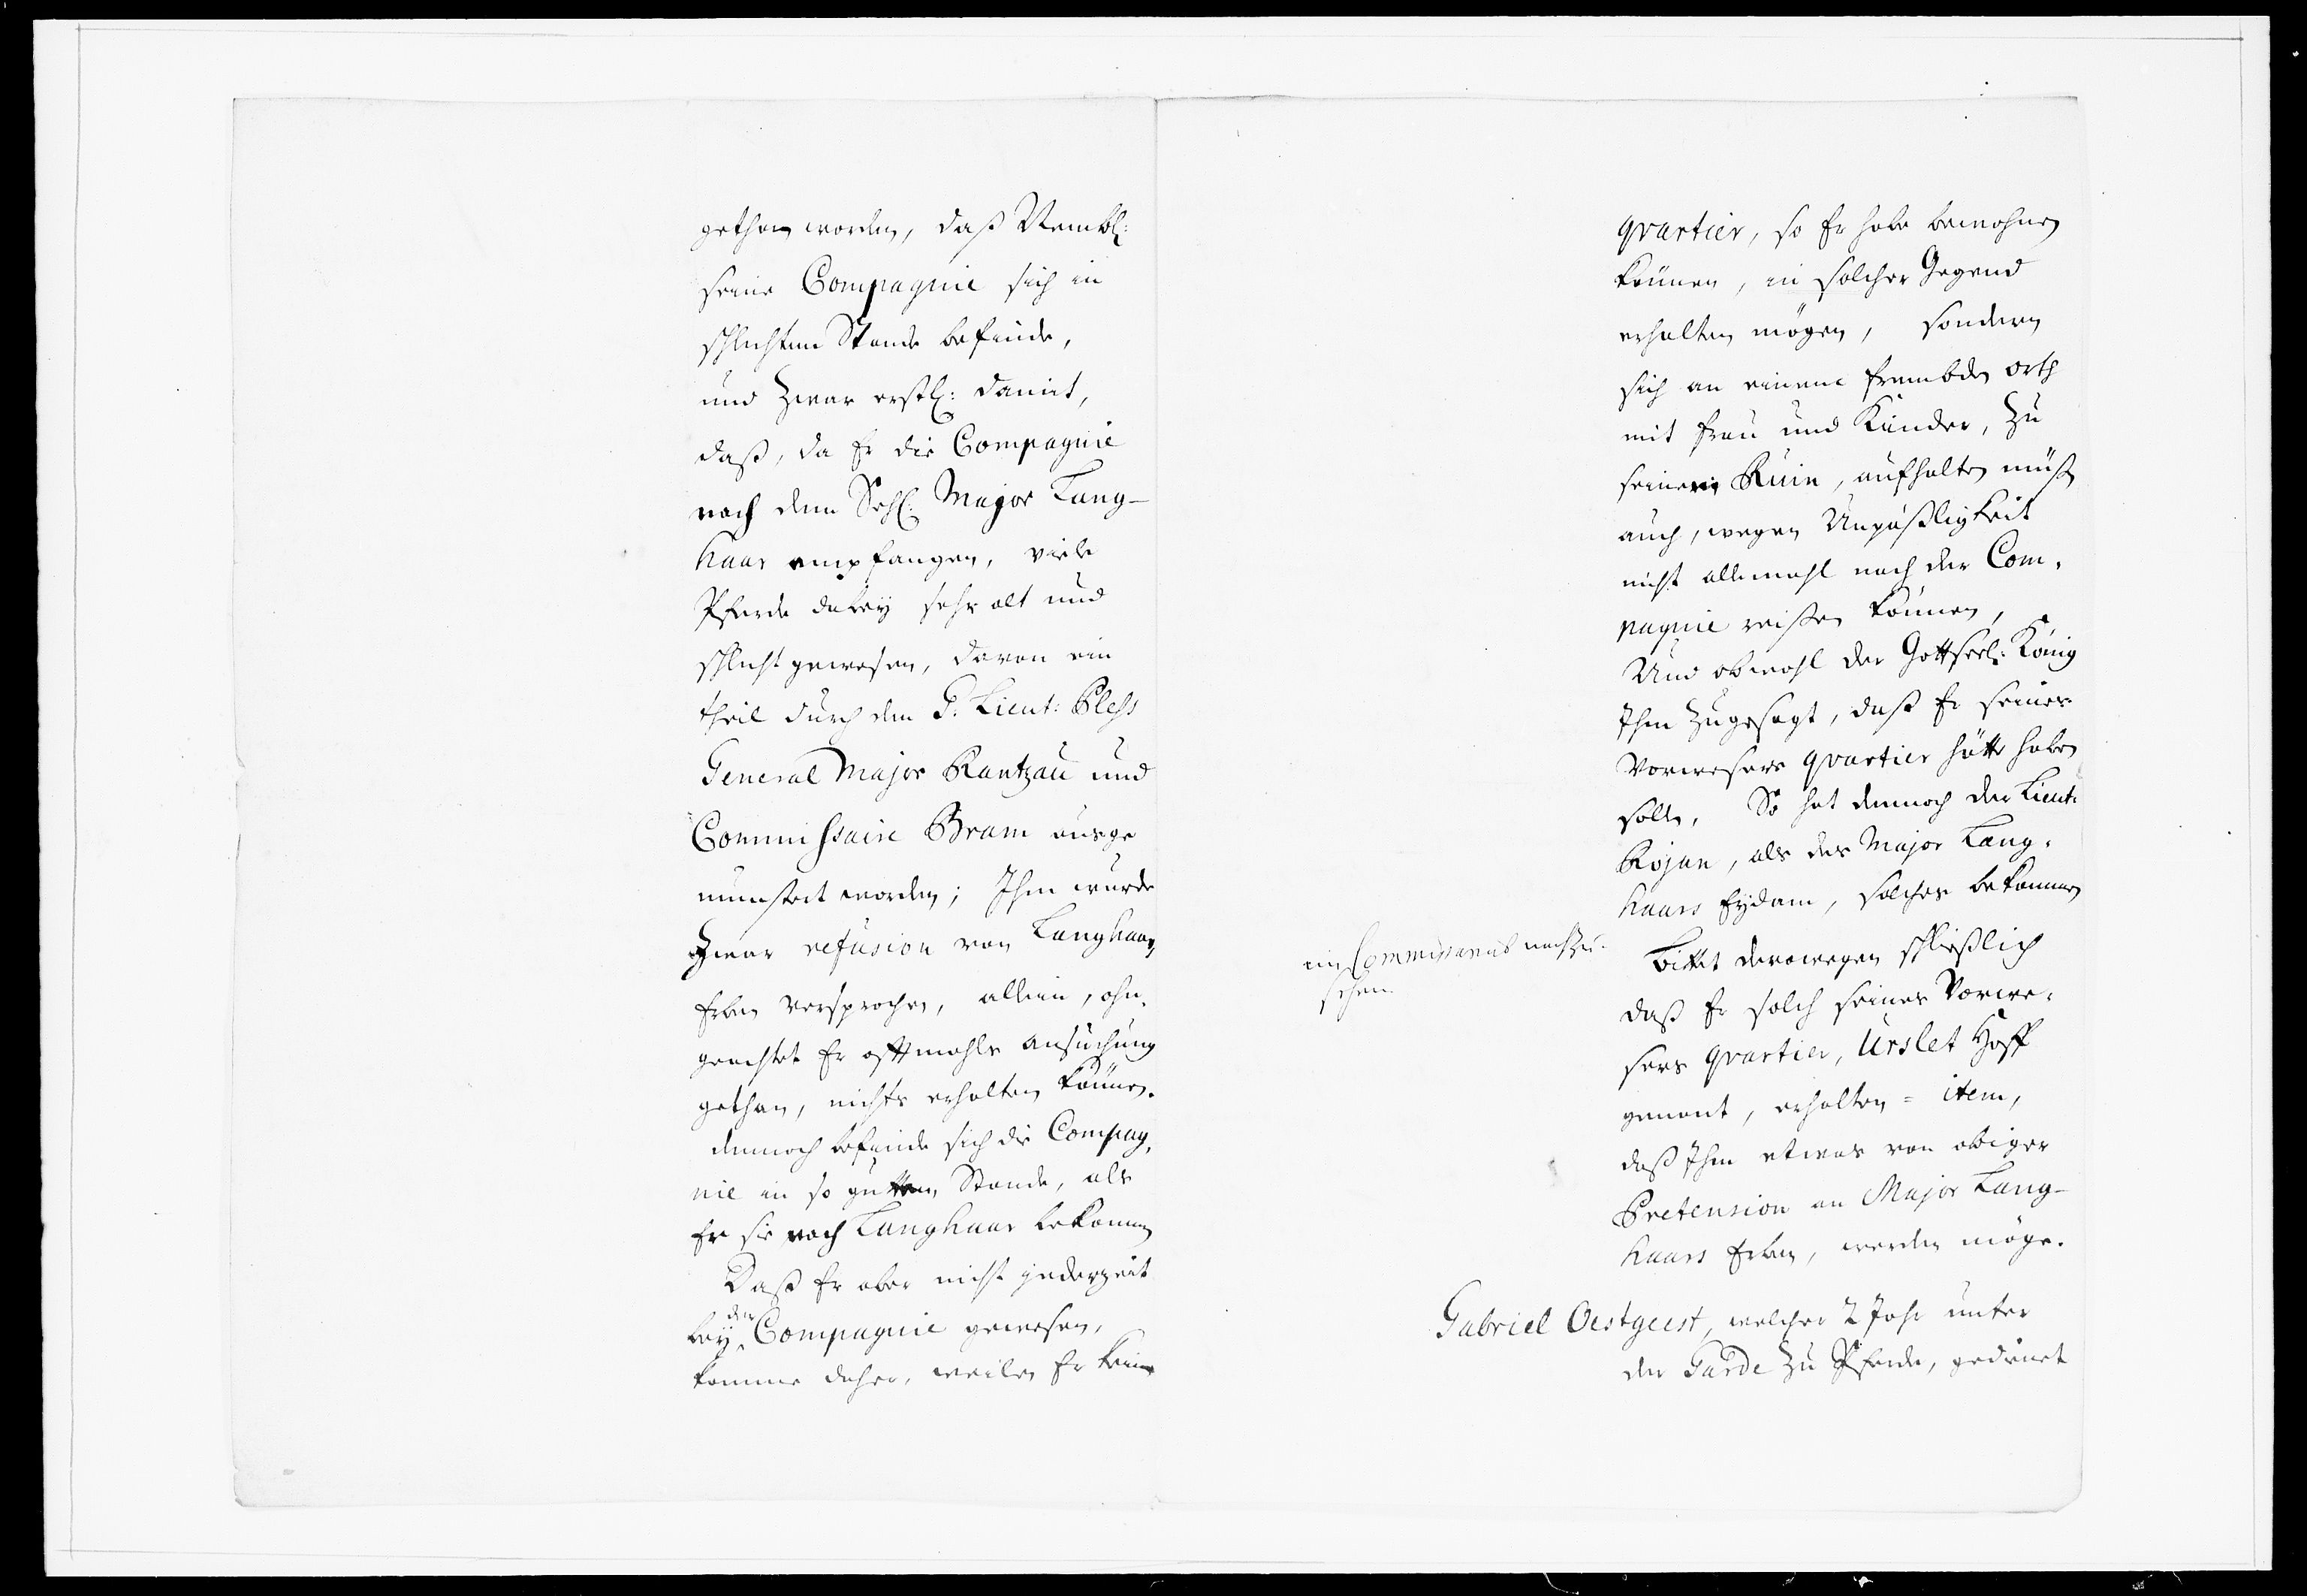 gethan worden, daß Nembl:
seine Compagnie sich in
schlechtem Stande befinde,
und Zwar erstl: damit,
daß, da Er die Compagnie
nach dem Sehl: Major Lang-
haar empfangen, viele
Pferde dabey sehr alt und
schlecht gewesen, davon ein
theil durch dem G. Lieut: Pless
General Major Rantzau und
Commissaire Bram ausge
munstert worden; Ihm wurde
Zwar refusion von Langhaar,
Erben versprochen, allein, ohn,
geachtet Er offtmahls ansuchung
gethan, nichts erhalten können.
dennoch befinde sich die Compag,
nie in so gutten Stande, als
Er sie nach Langhaar bekommen
Daß Er aber nicht jederzeit
bey der Compagnie gewesen,
komme daher, weilen Er kein
quartier, so Er habe bewohnen
können, in solcher Gegend
erhalten mögen, sondern
sich an einem frembden orth
mit frau und Kinder, Zu
seinem Ruin, aufhalten müst
auch, wegen Unpäßligkeit
nicht allemahl nach der Com,
pagnie reißen können,
Und obwohl der Gottseel: König
Ihm Zugesagt, daß Er seines
Vorwesers quartier hätte haben
solle, So hat dennoch der Lieut:
Rojan, als des Major Lang,
haars Eydam, solches bekommen
ein Commissarius nachzu-
sehen.
Bittet derowegen schließlich
daß Er solch seines Vorwe,
sers quartier, Urslet Hoff
genant, erhalten = item,
daß Ihm etwas von obiger
Pretension an Major Lang-
haars Erben, werden möge.
Gabriel Oestgeest, welcher 2 Jahr unter
der Garde Zu Pferde, gedienet